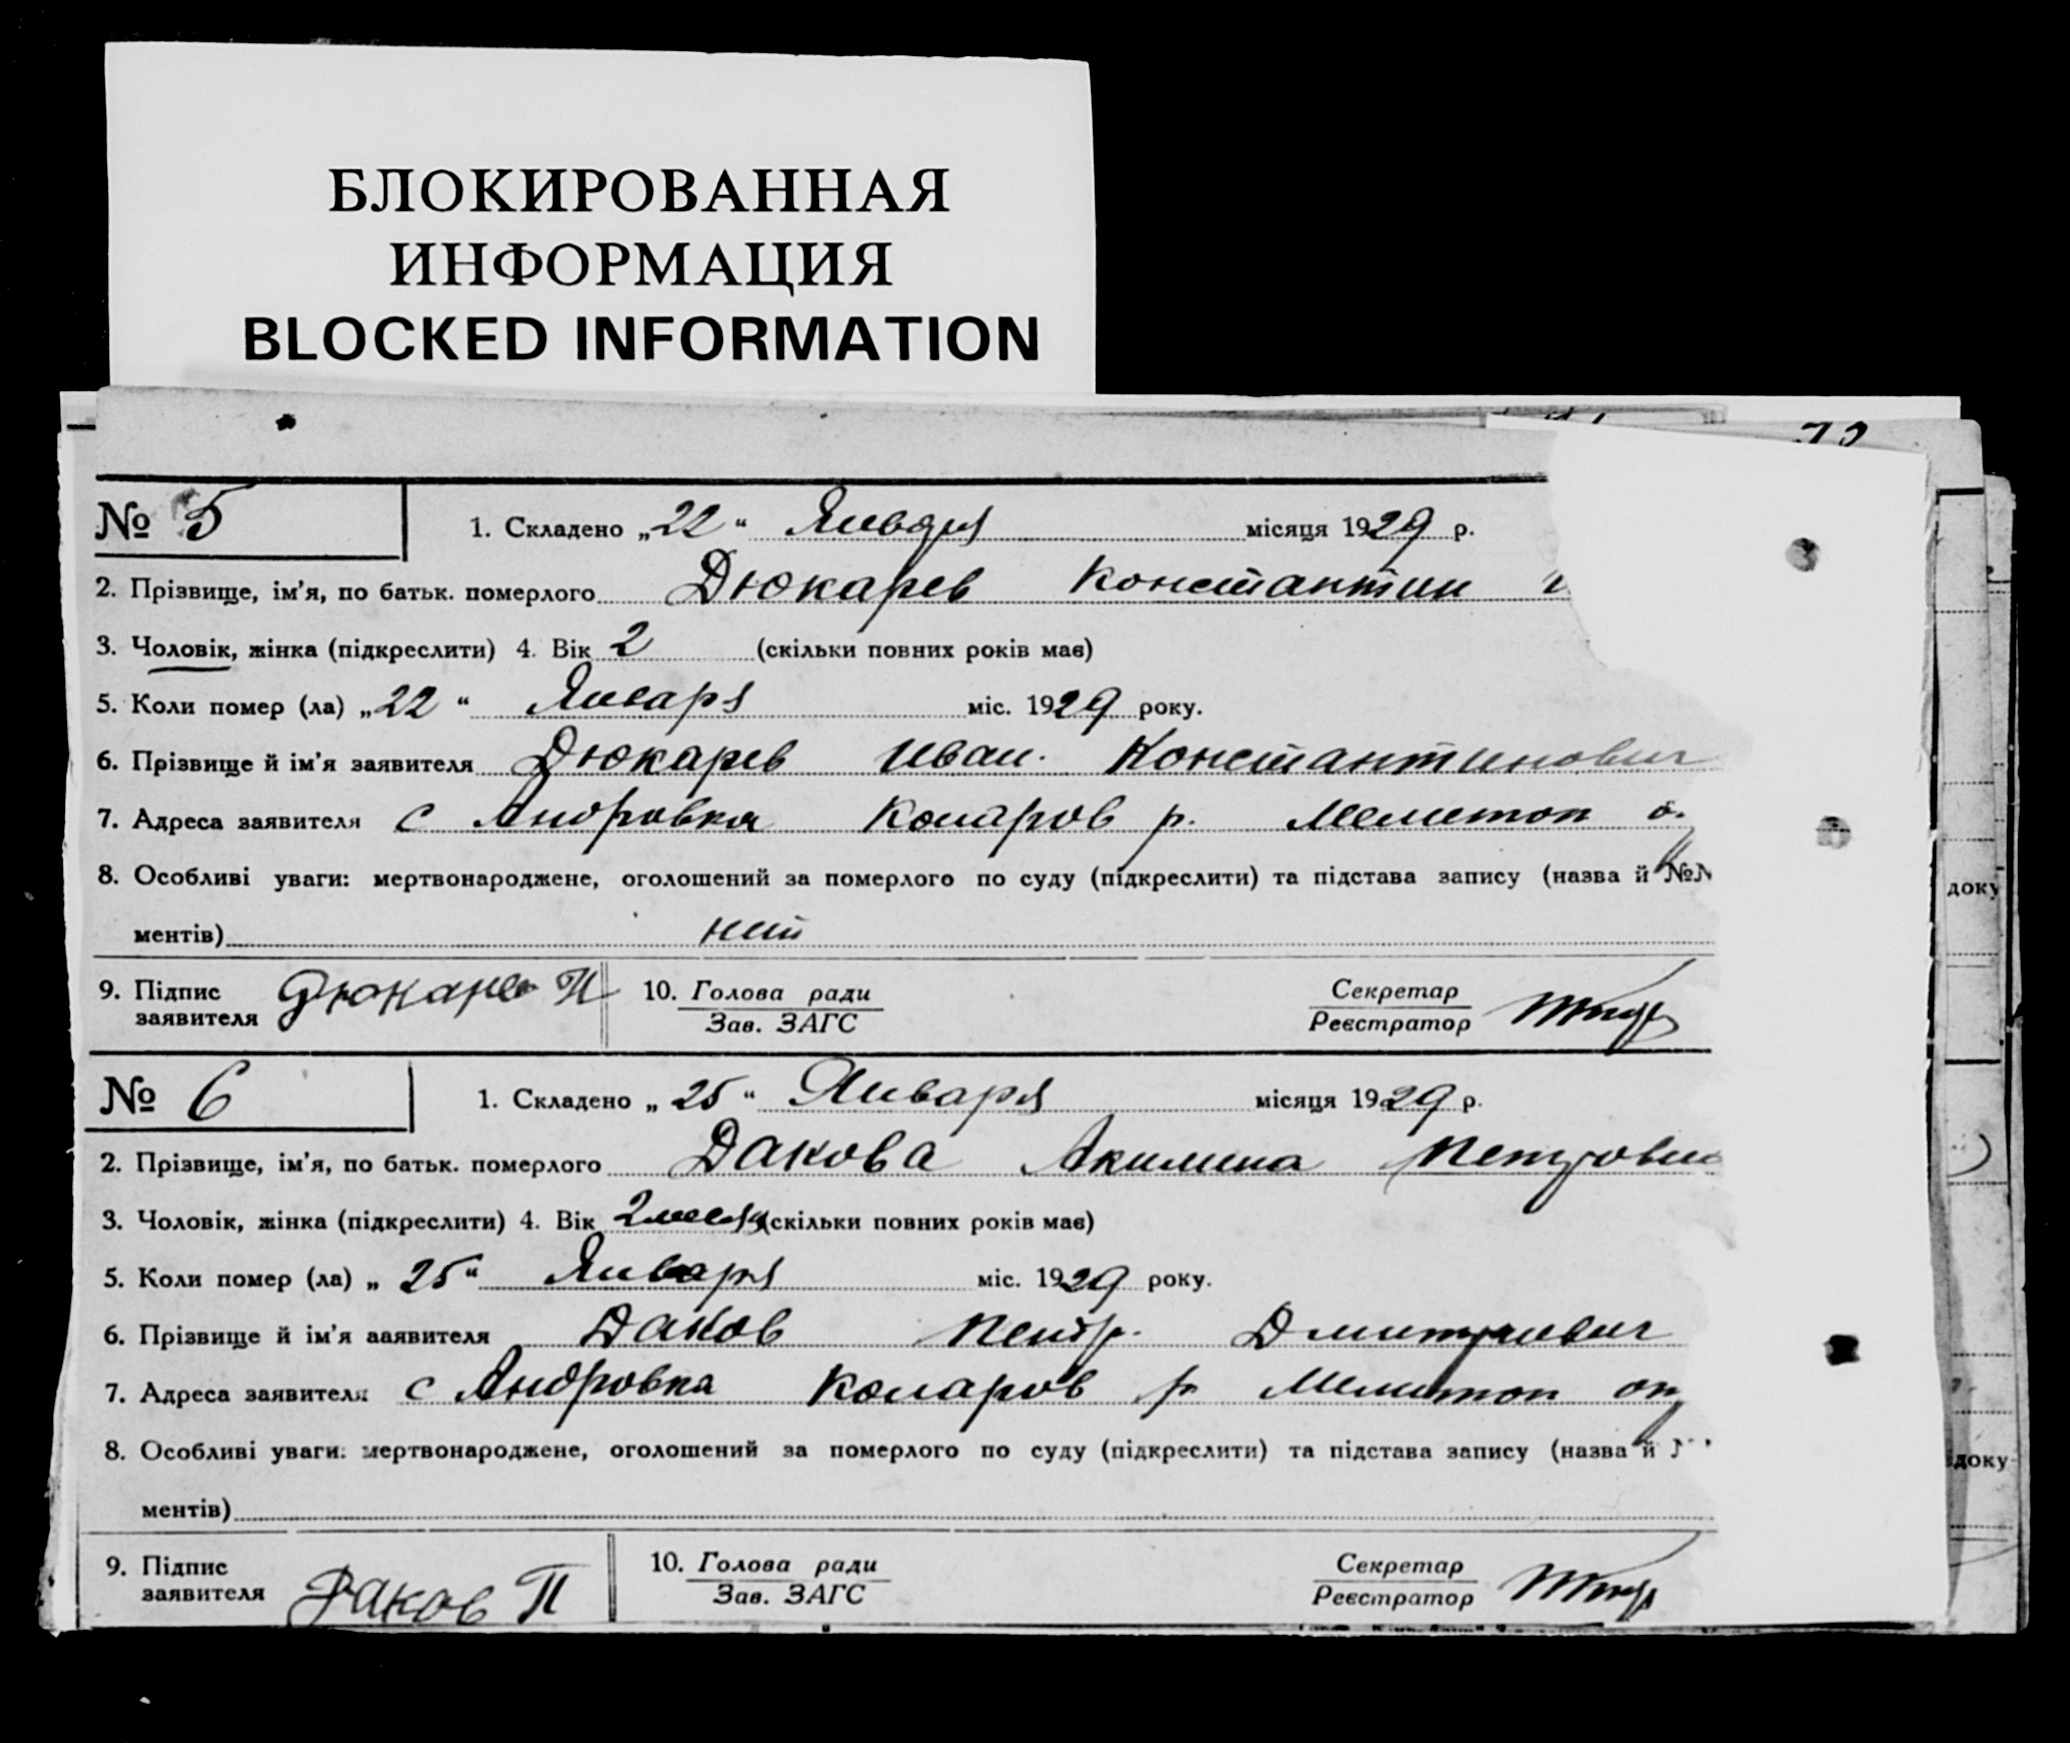 БЛОКИРОВАННАЯ
ИНФОРМАЦИЯ
BLOCKED INFORMATION
№ 5
1. Складено „22“ Января місяця 1929 р.
2. Прізвище, ім'я, по батьк. померлого Дюкарев Константин
3. Чоловік, жінка (підкреслити) 4. Вік 2 (скільки повних років має)
5. Коли помер (ла) „22“ Января міс. 1929 року.
6. Прізвище й ім'я заявителя Дюкарев Иван. Константинович
7. Адреса заявителя с Андровка Коларов р. Мелитоп о.
8. Особливі уваги: мертвонароджене, оголошений за померлого по суду (підкреслити) та підстава запису (назва й №№
доку
ментів) нет
9. Підпис заявителя Дюкарев И
10. Голова ради
Зав. ЗАГС
Секретар
Реєстратор
№ 6
1. Складено „25“ Января місяця 1929 р.
2. Прізвище, ім'я, по батьк. померлого Дакова Акилина Петровн
3. Чоловік, жінка (підкреслити) 4. Вік 2 месяц (скільки повних років має)
5. Коли помер (ла) „25“ Января міс. 1929 року.
6. Прізвище й ім'я заявителя Даков Петр. Дмитриевич
7. Адреса заявителя с Андровка Коларов р Мелитоп ок
8. Особливі уваги: мертвонароджене, оголошений за померлого по суду (підкреслити) та підстава запису (назва й
доку
ментів)
9. Підпис заявителя Даков П
10. Голова ради
Зав. ЗАГС
Секретар
Реєстратор